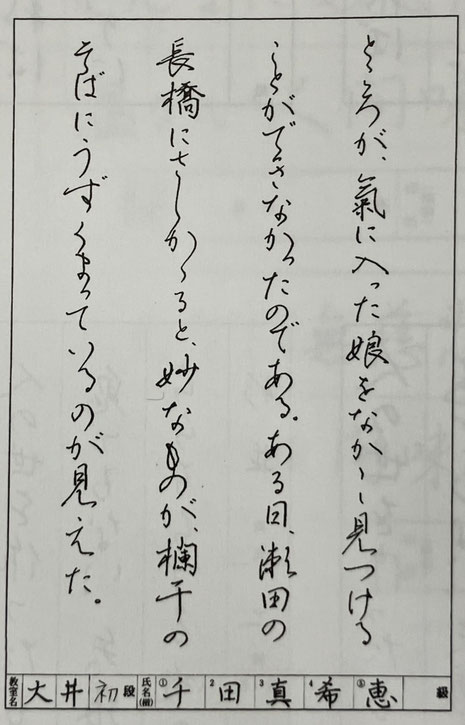 ところが、氣に入った娘をなか〳〵見つける
ことができなかったのである。ある日、瀬田の
長橋にさしかゝると、妙なものが、欄干の
そばにうずくまっているのが見えた。
教室名 大井 初段 氏名(細) ①千 2田 3真 4希 ⑤恵 級